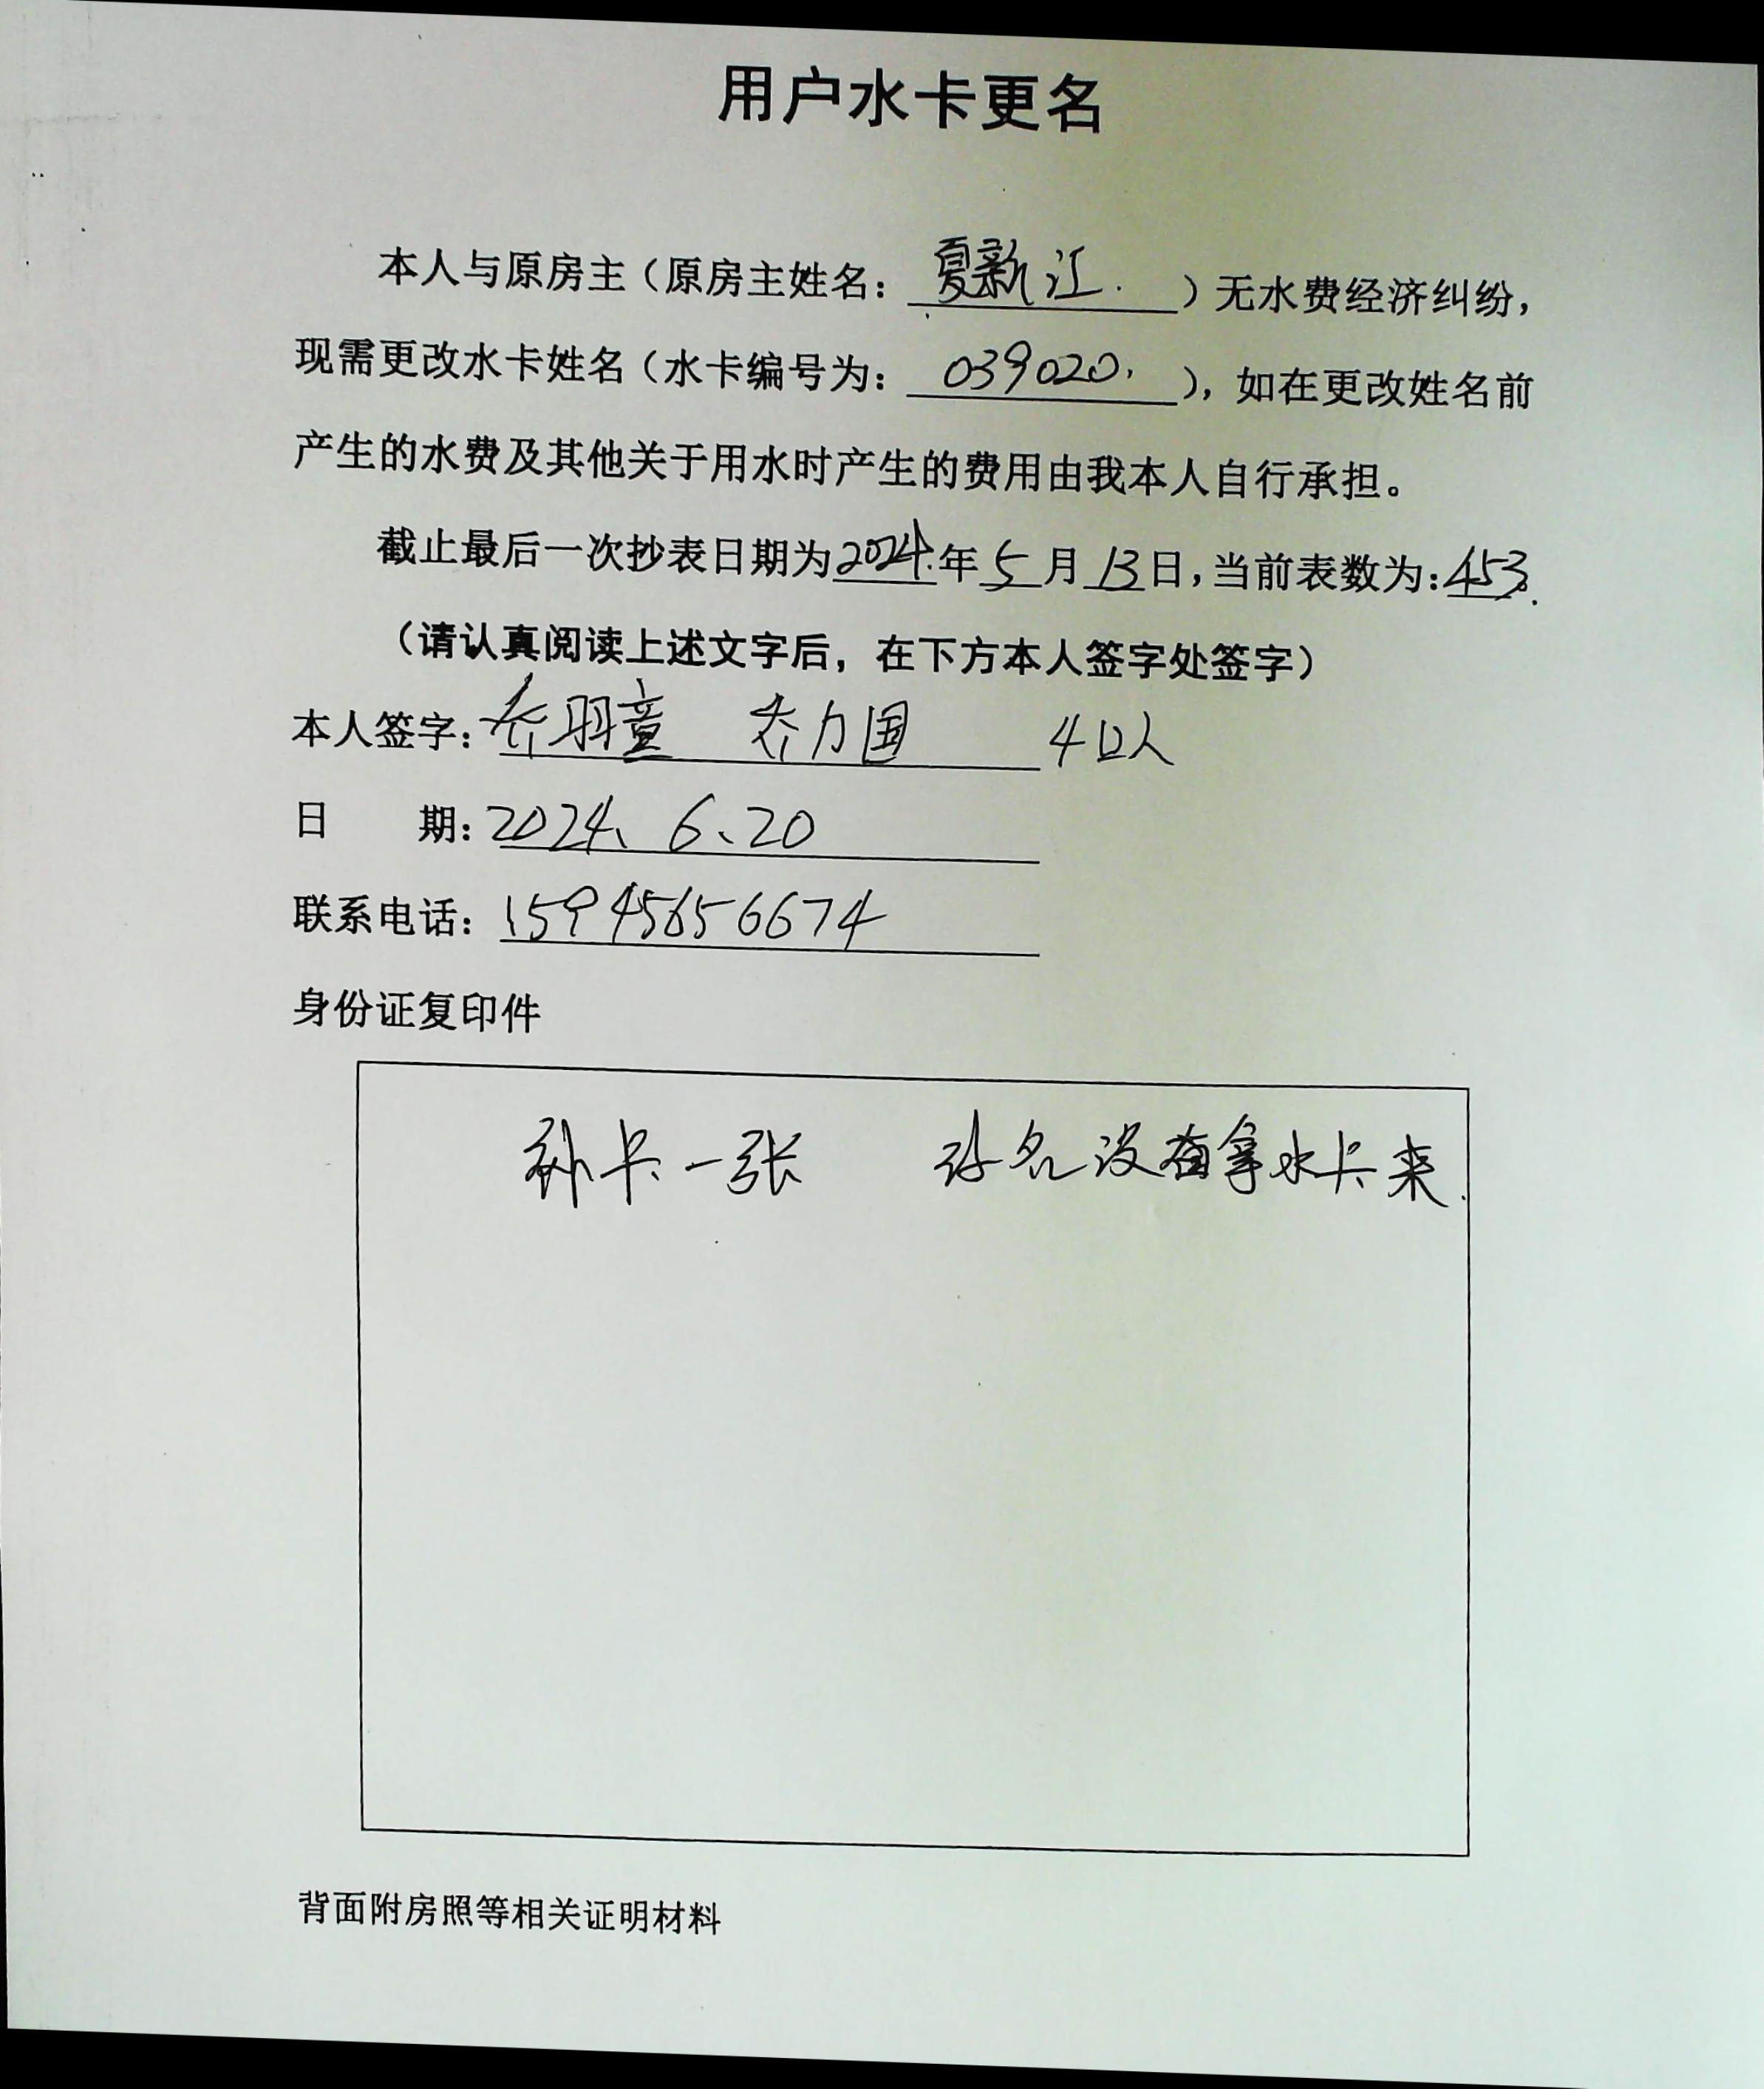 用户水卡更名
本人与原房主（原房主姓名：夏新江.）无水费经济纠纷，
现需更改水卡姓名（水卡编号为：039020.），如在更改姓名前
产生的水费及其他关于用水时产生的费用由我本人自行承担。
截止最后一次抄表日期为2024.年5月13日，当前表数为：453.
（请认真阅读上述文字后，在下方本人签字处签字）
本人签字：乔羽童 乔力国 4口人
日 期：2024、6、20
联系电话：15945656674
身份证复印件
补卡一张 没有拿水卡来.
背面附房照等相关证明材料